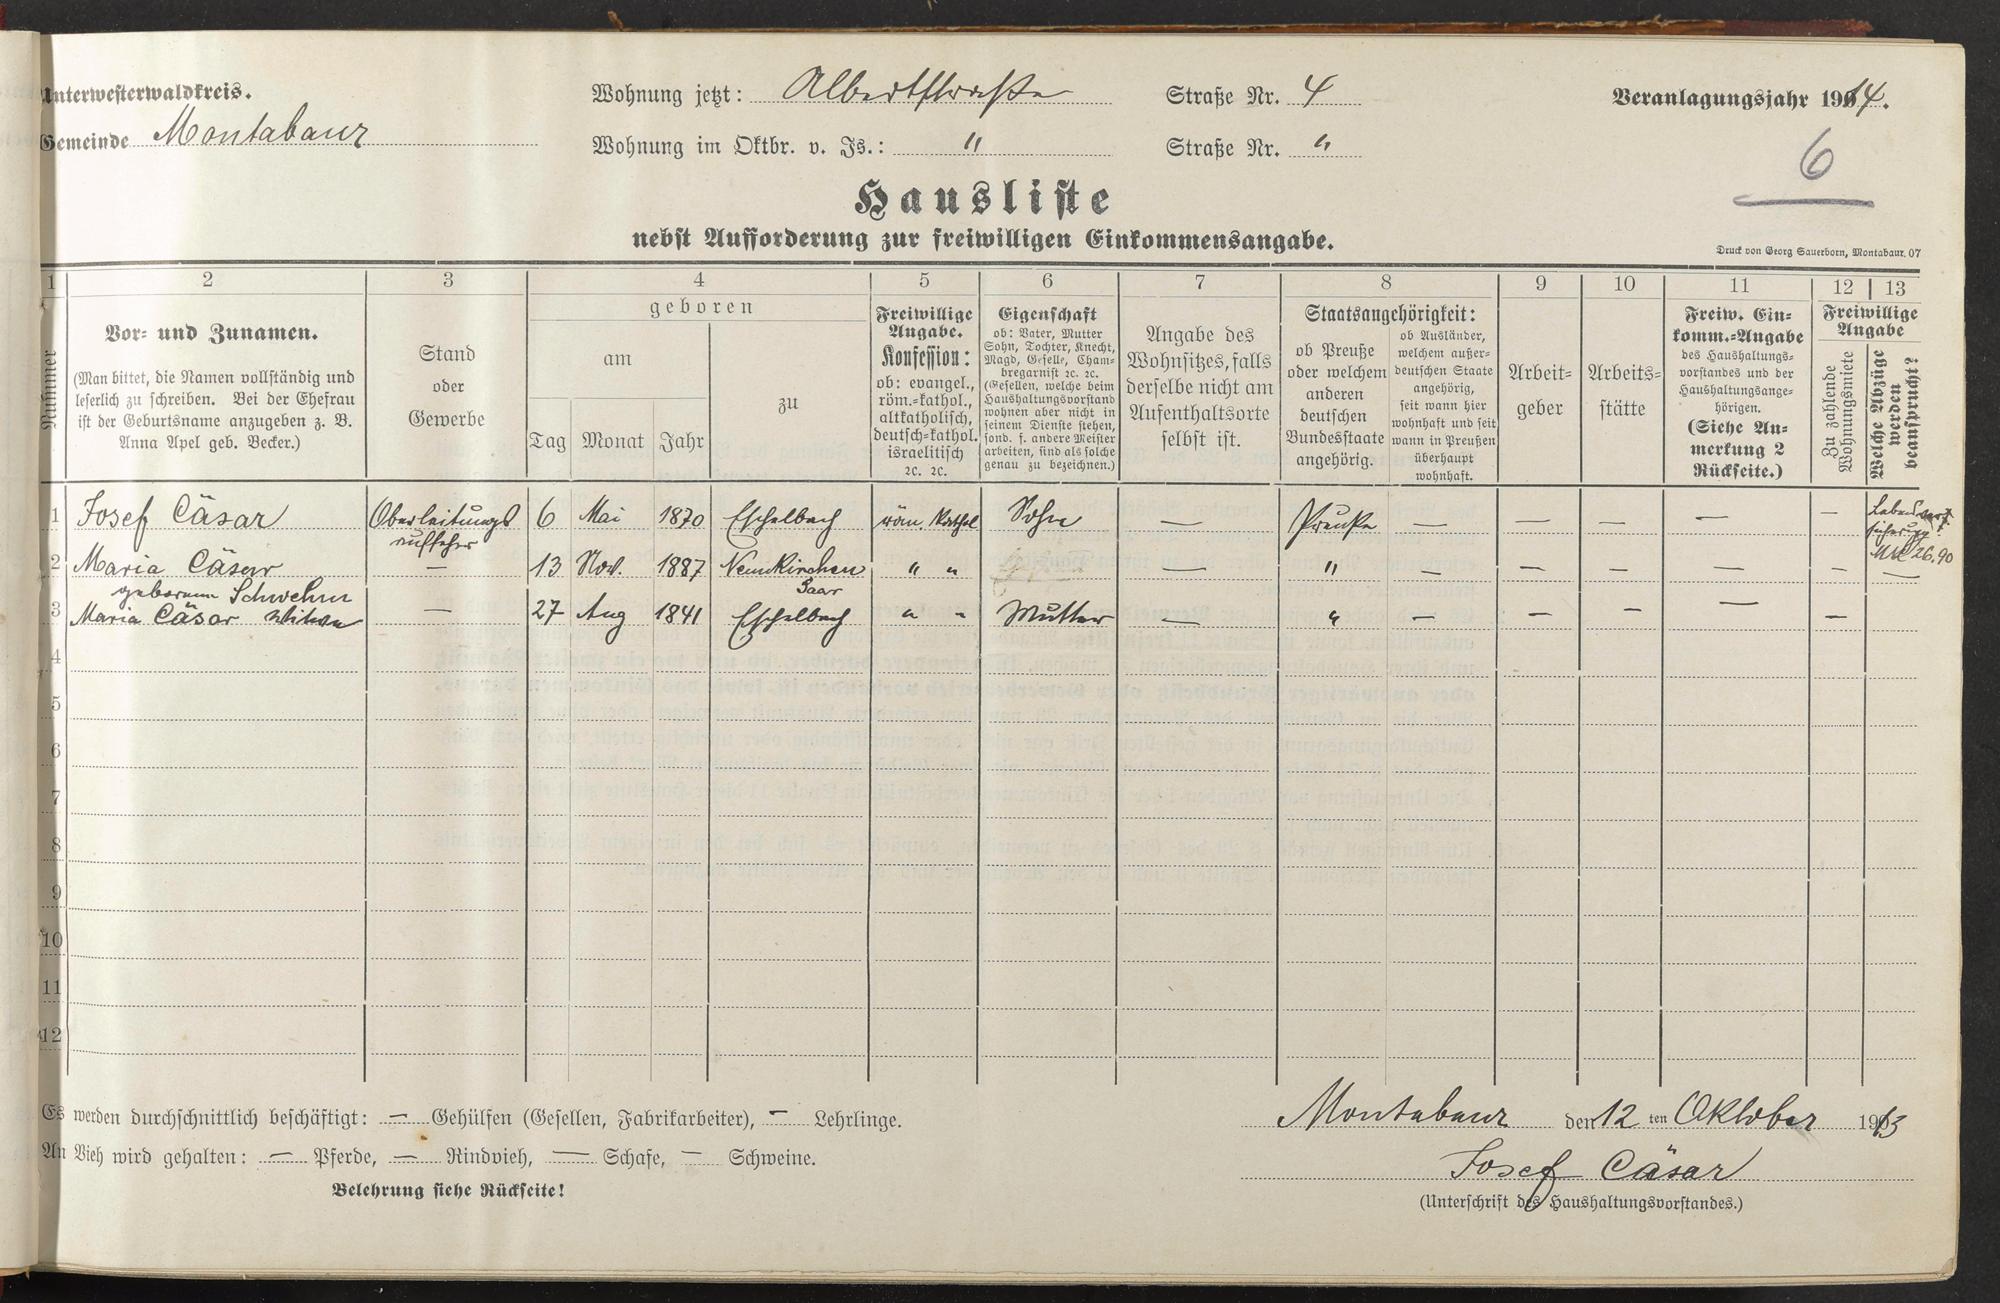 Unterwesterwaldkreis.
Gemeinde Montabaur
Wohnung jetzt: Albertstraße Straße Nr. 4
Wohnung im Oktbr. v. Js.: " Straße Nr. "
Veranlagungsjahr 1914.
6
Hausliste
nebst Aufforderung zur freiwilligen Einkommensangabe.
Druck von Georg Sauerborn, Montabaur. 07
1 2 3 4 5 6 7 8 9 10 11 12 13
Nummer
Vor- und Zunamen.
(Man bittet, die Namen vollständig und
leserlich zu schreiben. Bei der Ehefrau
ist der Geburtsname anzugeben z. B.
Anna Apel geb. Becker.)
Stand
oder
Gewerbe
geboren
am
Tag Monat Jahr
zu
Freiwillige
Angabe.
Konfession:
ob: evangel.,
röm.-kathol.,
altkatholisch,
deutsch-kathol.
israelitisch
2c. 2c.
Eigenschaft
ob: Vater, Mutter
Sohn, Tochter, Knecht,
Magd, Geselle, Cham-
bregarnist 2c. 2c.
(Gesellen, welche beim
Haushaltungsvorstand
wohnen aber nicht in
seinem Dienste stehen,
sond. f. andere Meister
arbeiten, sind als solche
genau zu bezeichnen.)
Angabe des
Wohnsitzes, falls
derselbe nicht am
Aufenthaltsorte
selbst ist.
Staatsangehörigkeit:
ob Preuße
oder welchem
anderen
deutschen
Bundesstaate
angehörig.
ob Ausländer,
welchem außer-
deutschen Staate
angehörig,
seit wann hier
wohnhaft und seit
wann in Preußen
überhaupt
wohnhaft.
Arbeit-
geber
Arbeits-
stätte
Freiw. Ein-
komm.-Angabe
des Haushaltungs-
vorstandes und der
Haushaltungsange-
hörigen.
(Siehe An-
merkung 2
Rückseite.)
Freiwillige
Angabe
Zu zahlende
Wohnungsmiete
Welche Abzüge
werden
beansprucht?
1 Josef Cäsar Oberleitungs 6 Mai 1870 Eschelbach röm. Kathol Sohn — Preuße — — — — — Lebensver-
aufseher sicherung
2 Maria Cäsar — 13 Nov. 1887 Neunkirchen " " — " — — — — — Mk 26.90
geborene Schwehm Saar —
3 Maria Cäsar Witwe — 27 Aug 1841 Eschelbach " " Mutter — " — — — — —
4
5
6
7
8
9
10
11
12
Es werden durchschnittlich beschäftigt: — Gehülfen (Gesellen, Fabrikarbeiter), — Lehrlinge.
An Vieh wird gehalten: — Pferde, — Rindvieh, — Schafe, — Schweine.
Belehrung siehe Rückseite!
Montabaur den 12 ten Oktober 1913
Josef Cäsar
(Unterschrift des Haushaltungsvorstandes.)